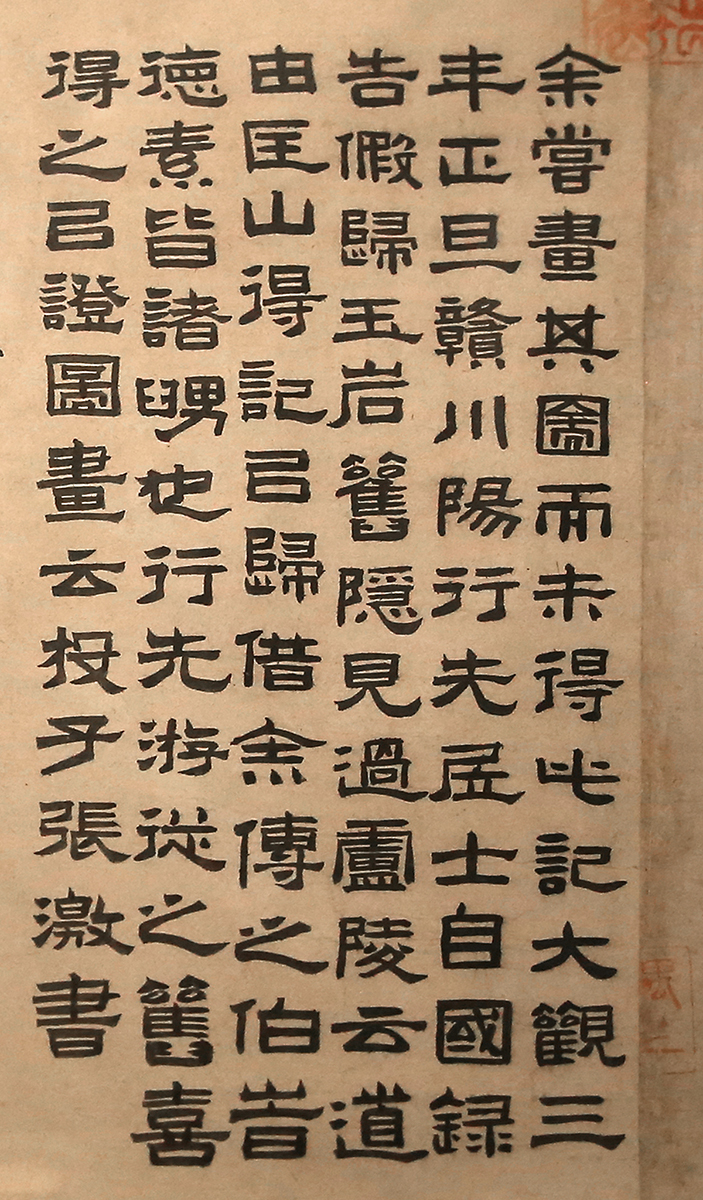 余嘗畫其圖而未得此記大觀三
年正旦贛川陽行先居士自國錄
告假歸玉岩舊隱見過盧陵云道
由匡山得記㠯歸借余傳之伯旹
德素皆諸舅也行先游從之舊喜
得之㠯證圖畫云投子張激書